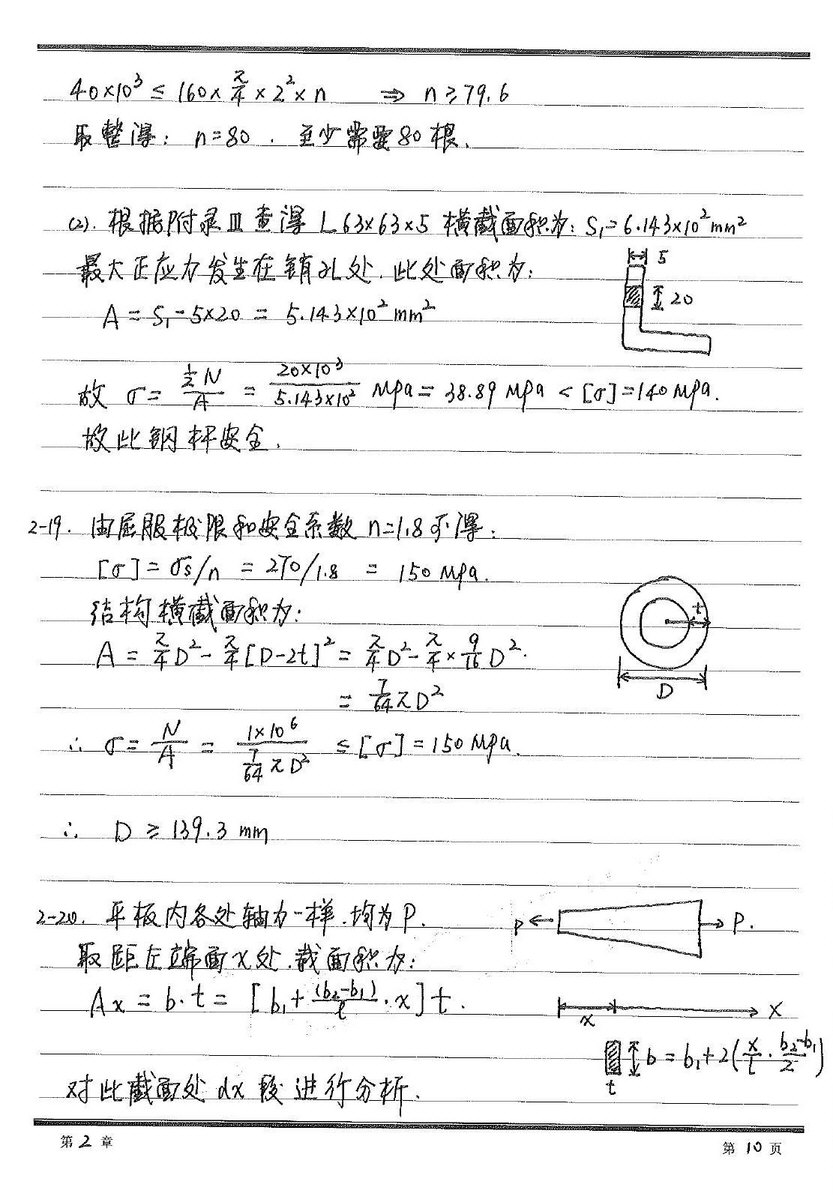 40×10³ ≤ 160×π/4×2²×n ⇒ n≥79.6
取整得: n=80 . 至少需要80根.
(2). 根据附录Ⅲ查得 L63×63×5 横截面积为: S₁=6.143×10²mm²
最大正应力发生在销孔处. 此处面积为:
5
20
A = S₁-5×20 = 5.143×10²mm²
故 σ = ½N/A = 20×10³/5.143×10² MPa = 38.89 MPa < [σ]=140MPa.
故此钢杆安全.
2-19. 由屈服极限和安全系数 n=1.8可得:
[σ]=σs/n = 270/1.8 = 150MPa.
结构横截面积为:
t
D
A = π/4D²-π/4[D-2t]² = π/4D²-π/4×9/16D².
= 7/64πD²
∴ σ = N/A = 1×10⁶/(7/64 πD²) ≤ [σ] = 150MPa.
∴ D ≥ 139.3 mm
2-20. 平板内各处轴力一样.均为P.
P P.
取距左端面x处.截面积为:
Ax = b·t = [b₁+(b₂-b₁)/l·x]t.
x X
t b = b₁+2(x/l·(b₂-b₁)/2)
对此截面处 dx 段进行分析.
第 2 章
第 10 页